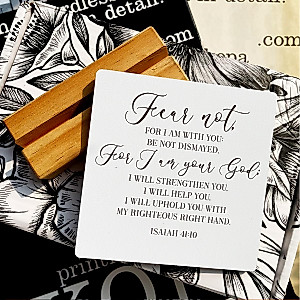 detail.
.com
Fear not,
FOR I AM WITH YOU:
BE NOT DISMAYED.
For I am your God;
I WILL STRENGTHEN YOU.
I WILL HELP YOU.
I WILL UPHOLD YOU WITH
MY RIGHTEOUS RIGHT HAND.
ISAIAH 41:10